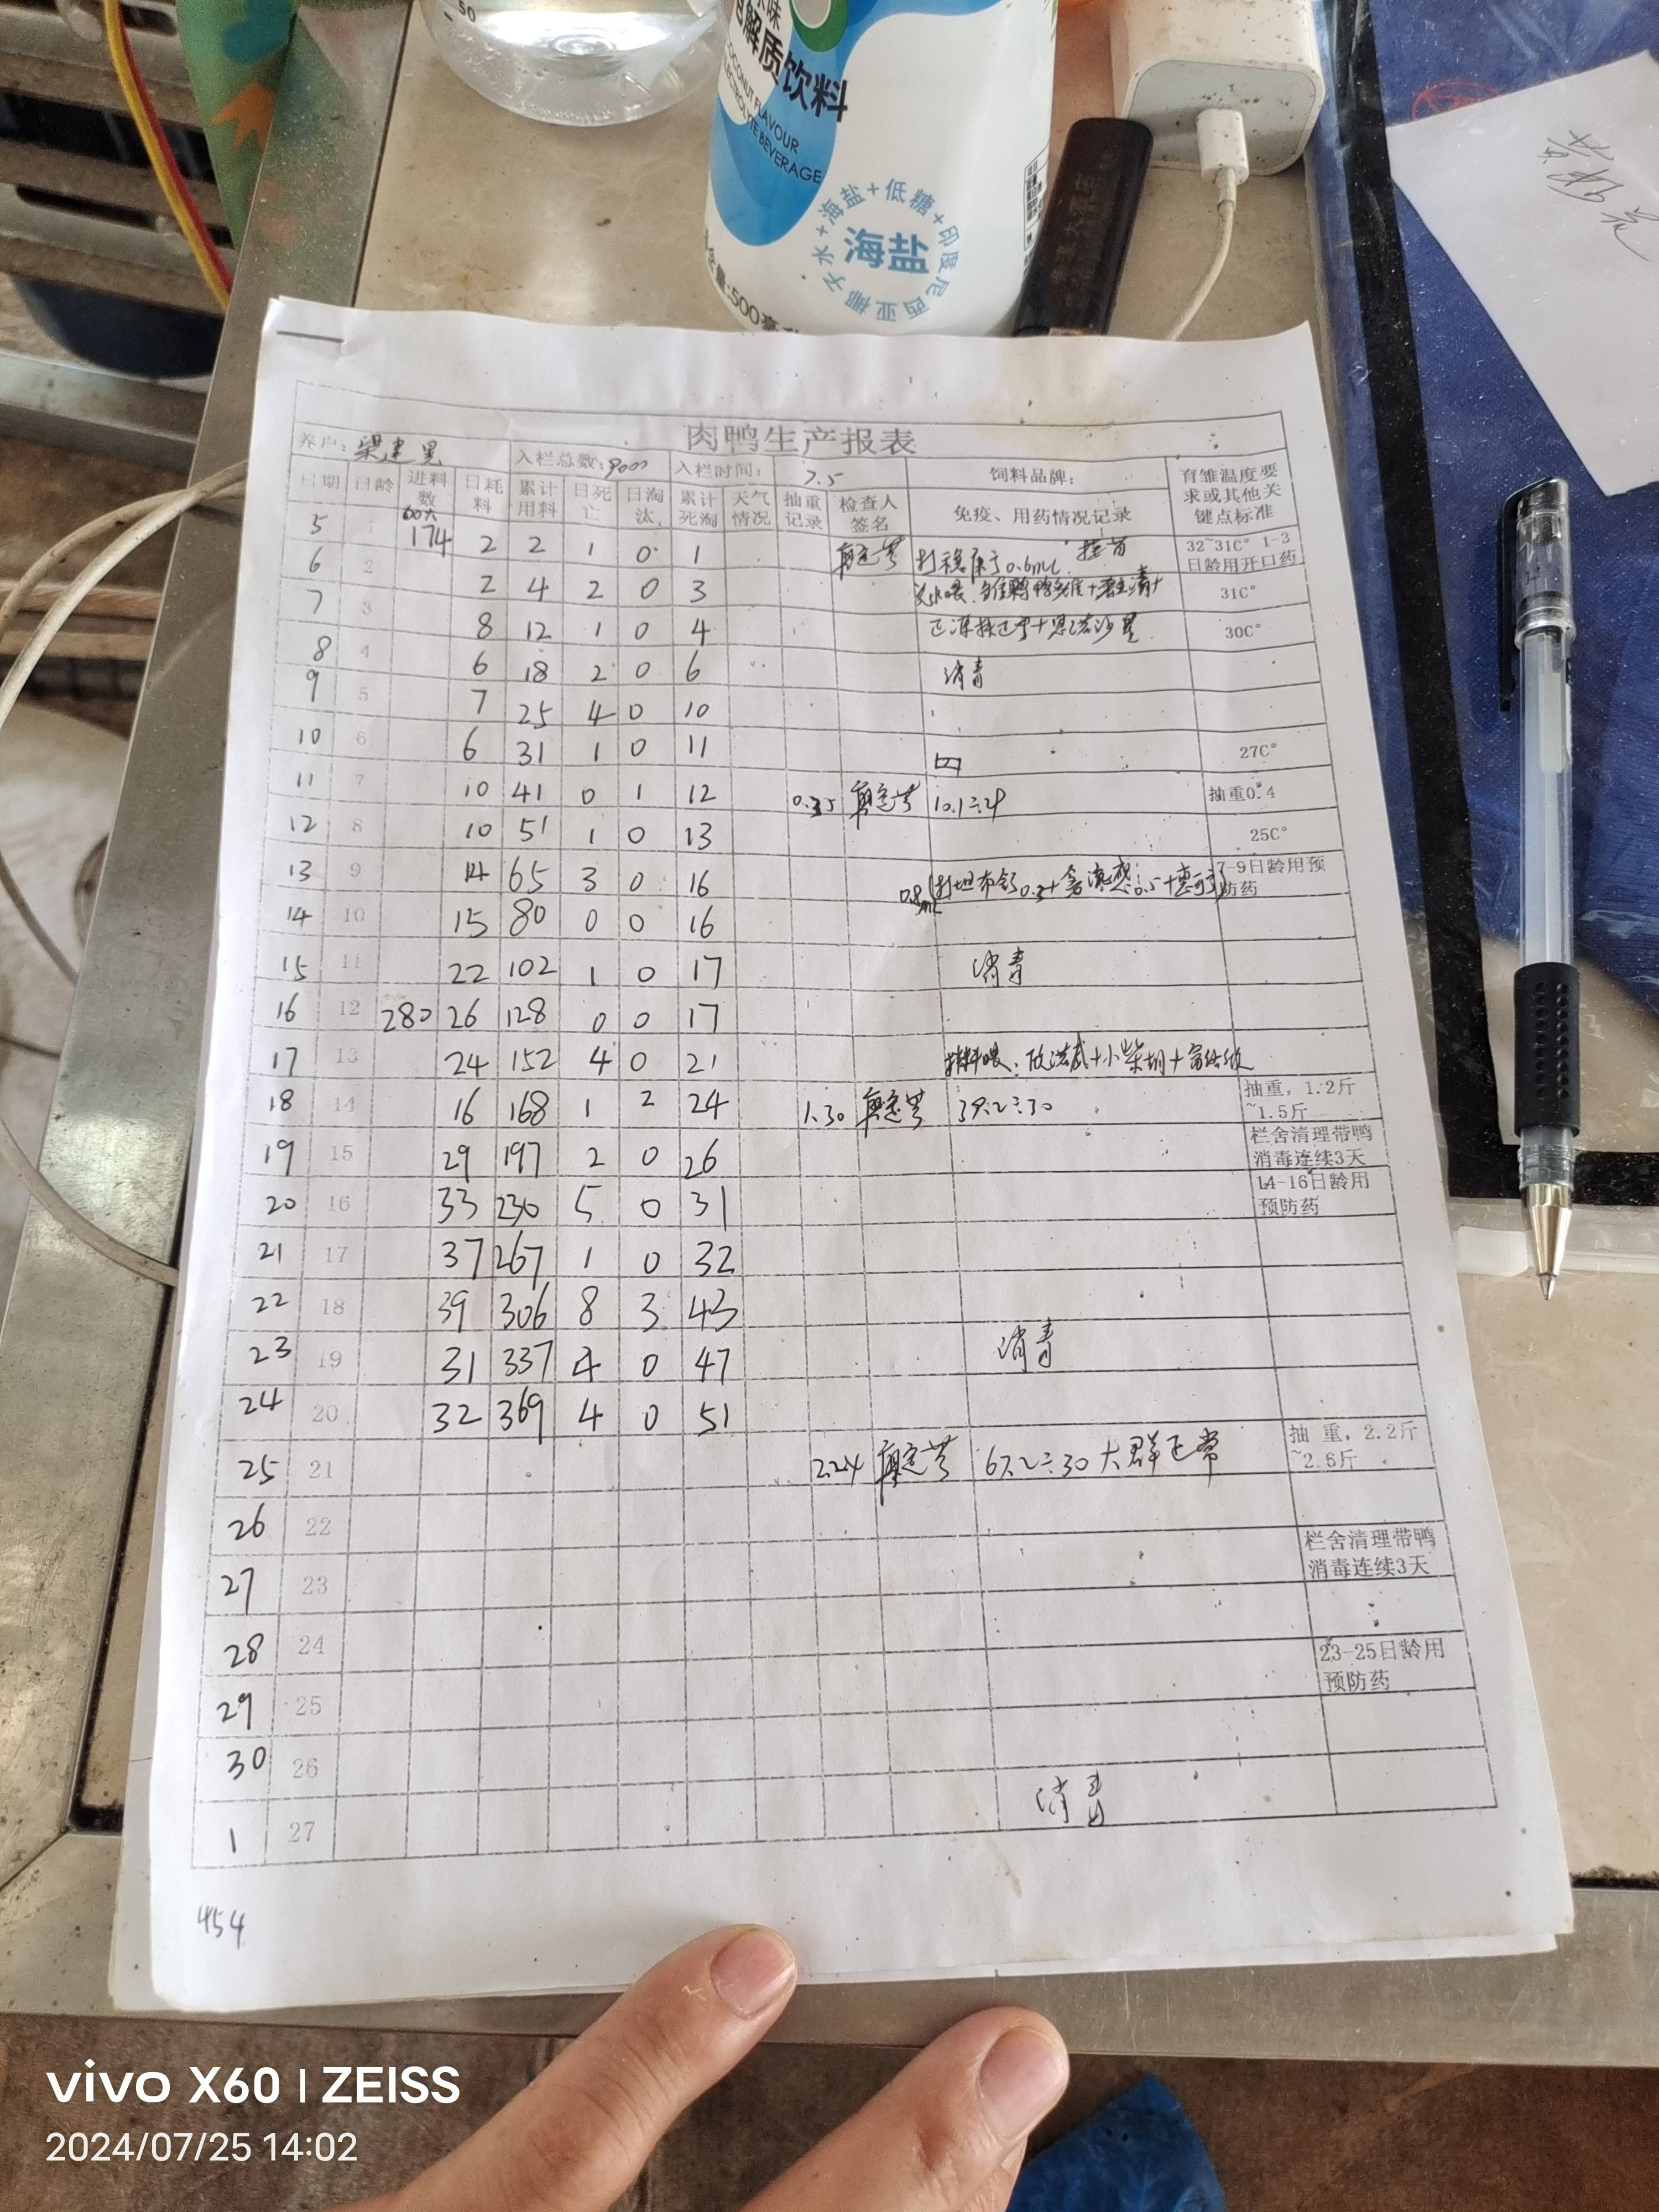 50
味
电解质饮料
COCONUT FLAVOUR
ELECTROLYTE BEVERAGE
水+海盐+低糖+印度尼西亚椰子水
海盐
净含量:500毫升
肉鸭生产报表
养户: 入栏总数:9000 入栏时间: 7.5 饲料品牌: 育雏温度要求或其他关键点标准
日期 日龄 进料数 日耗料 累计用料 日死亡 日淘汰 累计死淘 天气情况 抽重记录 检查人签名 免疫、用药情况记录
5 1 174 2 2 1 0 1 0.6ml 32~31C° 1-3日龄用开口药
6 2 2 4 2 0 3 31C°
7 3 8 12 1 0 4 30C°
8 4 6 18 2 0 6 消毒
9 5 7 25 4 0 10
10 6 6 31 1 0 11 27C°
11 7 10 41 0 1 12 0.35 10.1÷29 抽重0.4
12 8 10 51 1 0 13 25C°
13 9 14 65 3 0 16 0.8ml 7-9日龄用预防药
14 10 15 80 0 0 16
15 11 22 102 1 0 17 消毒
16 12 280 26 128 0 0 17
17 13 24 152 4 0 21 拌料喂: +小柴胡+
18 14 16 168 1 2 24 1.30 39.2÷30 抽重，1.2斤~1.5斤
19 15 29 197 2 0 26 栏舍清理带鸭消毒连续3天
20 16 33 230 5 0 31 14-16日龄用预防药
21 17 37 267 1 0 32
22 18 39 306 8 3 43
23 19 31 337 4 0 47 消毒
24 20 32 369 4 0 51
25 21 2.24 67.2÷30 大群正常 抽 重，2.2斤~2.6斤
26 22
27 23 栏舍清理带鸭消毒连续3天
28 24
29 25 23-25日龄用预防药
30 26
1 27 消毒
454
vivo X60 | ZEISS
2024/07/25 14:02